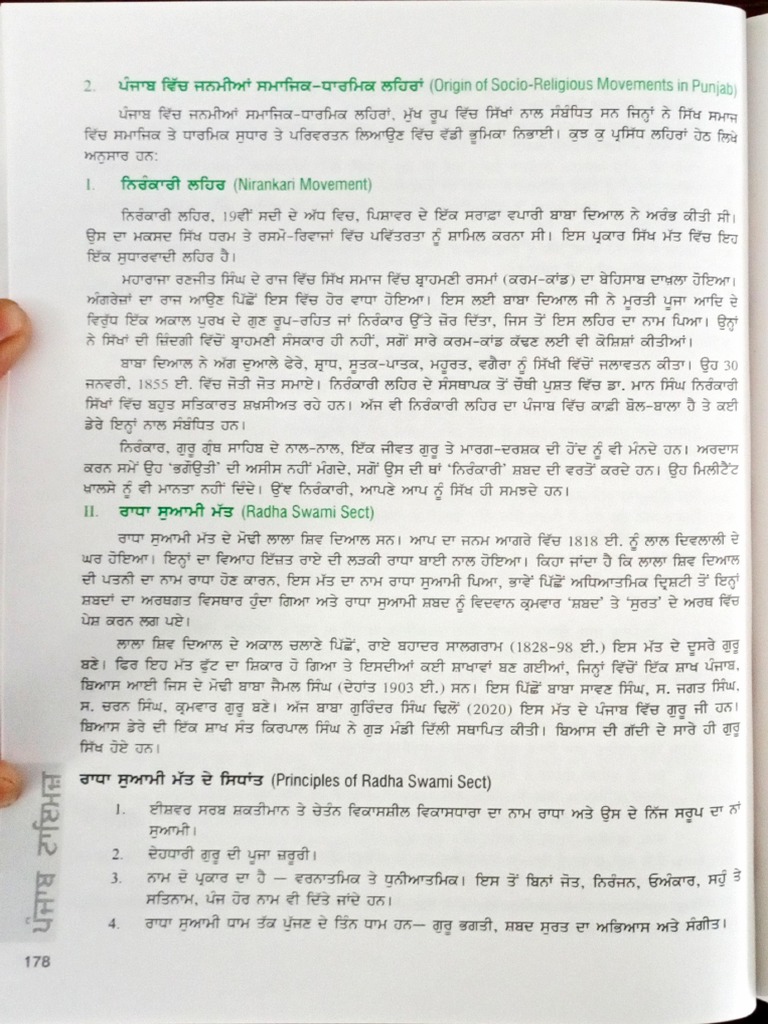 2. ਪੰਜਾਬ ਵਿੱਚ ਜਨਮੀਆਂ ਸਮਾਜਿਕ-ਧਾਰਮਿਕ ਲਹਿਰਾਂ (Origin of Socio-Religious Movements in Punjab)
ਪੰਜਾਬ ਵਿੱਚ ਜਨਮੀਆਂ ਸਮਾਜਿਕ-ਧਾਰਮਿਕ ਲਹਿਰਾਂ, ਮੁੱਖ ਰੂਪ ਵਿੱਚ ਸਿੱਖਾਂ ਨਾਲ ਸੰਬੰਧਿਤ ਸਨ ਜਿਨ੍ਹਾਂ ਨੇ ਸਿੱਖ ਸਮਾਜ
ਵਿੱਚ ਸਮਾਜਿਕ ਤੇ ਧਾਰਮਿਕ ਸੁਧਾਰ ਤੇ ਪਰਿਵਰਤਨ ਲਿਆਉਣ ਵਿੱਚ ਵੱਡੀ ਭੂਮਿਕਾ ਨਿਭਾਈ। ਕੁਝ ਕੁ ਪ੍ਰਸਿੱਧ ਲਹਿਰਾਂ ਹੇਠ ਲਿਖੇ
ਅਨੁਸਾਰ ਹਨ:
I. ਨਿਰੰਕਾਰੀ ਲਹਿਰ (Nirankari Movement)
ਨਿਰੰਕਾਰੀ ਲਹਿਰ, 19ਵੀਂ ਸਦੀ ਦੇ ਅੱਧ ਵਿਚ, ਪਿਸ਼ਾਵਰ ਦੇ ਇੱਕ ਸਰਾਫ਼ਾ ਵਪਾਰੀ ਬਾਬਾ ਦਿਆਲ ਨੇ ਅਰੰਭ ਕੀਤੀ ਸੀ।
ਉਸ ਦਾ ਮਕਸਦ ਸਿੱਖ ਧਰਮ ਤੇ ਰਸਮੋ-ਰਿਵਾਜਾਂ ਵਿੱਚ ਪਵਿੱਤਰਤਾ ਨੂੰ ਸ਼ਾਮਿਲ ਕਰਨਾ ਸੀ। ਇਸ ਪ੍ਰਕਾਰ ਸਿੱਖ ਮੱਤ ਵਿੱਚ ਇਹ
ਇੱਕ ਸੁਧਾਰਵਾਦੀ ਲਹਿਰ ਹੈ।
ਮਹਾਰਾਜਾ ਰਣਜੀਤ ਸਿੰਘ ਦੇ ਰਾਜ ਵਿੱਚ ਸਿੱਖ ਸਮਾਜ ਵਿੱਚ ਬ੍ਰਾਹਮਣੀ ਰਸਮਾਂ (ਕਰਮ-ਕਾਂਡ) ਦਾ ਬੇਹਿਸਾਬ ਦਾਖ਼ਲਾ ਹੋਇਆ।
ਅੰਗਰੇਜ਼ਾਂ ਦਾ ਰਾਜ ਆਉਣ ਪਿੱਛੋਂ ਇਸ ਵਿੱਚ ਹੋਰ ਵਾਧਾ ਹੋਇਆ। ਇਸ ਲਈ ਬਾਬਾ ਦਿਆਲ ਜੀ ਨੇ ਮੂਰਤੀ ਪੂਜਾ ਆਦਿ ਦੇ
ਵਿਰੁੱਧ ਇੱਕ ਅਕਾਲ ਪੁਰਖ ਦੇ ਗੁਣ ਰੂਪ-ਰਹਿਤ ਜਾਂ ਨਿਰੰਕਾਰ ਉੱਤੇ ਜ਼ੋਰ ਦਿੱਤਾ, ਜਿਸ ਤੋਂ ਇਸ ਲਹਿਰ ਦਾ ਨਾਮ ਪਿਆ। ਉਨ੍ਹਾਂ
ਨੇ ਸਿੱਖਾਂ ਦੀ ਜ਼ਿੰਦਗੀ ਵਿੱਚੋਂ ਬ੍ਰਾਹਮਣੀ ਸੰਸਕਾਰ ਹੀ ਨਹੀਂ, ਸਗੋਂ ਸਾਰੇ ਕਰਮ-ਕਾਂਡ ਕੱਢਣ ਲਈ ਵੀ ਕੋਸ਼ਿਸ਼ਾਂ ਕੀਤੀਆਂ।
ਬਾਬਾ ਦਿਆਲ ਨੇ ਅੱਗ ਦੁਆਲੇ ਫੇਰੇ, ਸ਼੍ਰਾਧ, ਸੂਤਕ-ਪਾਤਕ, ਮਹੂਰਤ, ਵਗੈਰਾ ਨੂੰ ਸਿੱਖੀ ਵਿੱਚੋਂ ਜਲਾਵਤਨ ਕੀਤਾ। ਉਹ 30
ਜਨਵਰੀ, 1855 ਈ. ਵਿੱਚ ਜੋਤੀ ਜੋਤ ਸਮਾਏ। ਨਿਰੰਕਾਰੀ ਲਹਿਰ ਦੇ ਸੰਸਥਾਪਕ ਤੋਂ ਚੌਥੀ ਪੁਸ਼ਤ ਵਿੱਚ ਡਾ. ਮਾਨ ਸਿੰਘ ਨਿਰੰਕਾਰੀ
ਸਿੱਖਾਂ ਵਿੱਚ ਬਹੁਤ ਸਤਿਕਾਰਤ ਸ਼ਖ਼ਸੀਅਤ ਰਹੇ ਹਨ। ਅੱਜ ਵੀ ਨਿਰੰਕਾਰੀ ਲਹਿਰ ਦਾ ਪੰਜਾਬ ਵਿੱਚ ਕਾਫ਼ੀ ਬੋਲ-ਬਾਲਾ ਹੈ ਤੇ ਕਈ
ਡੇਰੇ ਇਨ੍ਹਾਂ ਨਾਲ ਸੰਬੰਧਿਤ ਹਨ।
ਨਿਰੰਕਾਰ, ਗੁਰੂ ਗ੍ਰੰਥ ਸਾਹਿਬ ਦੇ ਨਾਲ-ਨਾਲ, ਇੱਕ ਜੀਵਤ ਗੁਰੂ ਤੇ ਮਾਰਗ-ਦਰਸ਼ਕ ਦੀ ਹੋਂਦ ਨੂੰ ਵੀ ਮੰਨਦੇ ਹਨ। ਅਰਦਾਸ
ਕਰਨ ਸਮੇਂ ਉਹ 'ਭਗੌਉਤੀ' ਦੀ ਅਸੀਸ ਨਹੀਂ ਮੰਗਦੇ, ਸਗੋਂ ਉਸ ਦੀ ਥਾਂ 'ਨਿਰੰਕਾਰੀ' ਸ਼ਬਦ ਦੀ ਵਰਤੋਂ ਕਰਦੇ ਹਨ। ਉਹ ਮਿਲੀਟੈਂਟ
ਖ਼ਾਲਸੇ ਨੂੰ ਵੀ ਮਾਨਤਾ ਨਹੀਂ ਦਿੰਦੇ। ਉਂਞ ਨਿਰੰਕਾਰੀ, ਆਪਣੇ ਆਪ ਨੂੰ ਸਿੱਖ ਹੀ ਸਮਝਦੇ ਹਨ।
II. ਰਾਧਾ ਸੁਆਮੀ ਮੱਤ (Radha Swami Sect)
ਰਾਧਾ ਸੁਆਮੀ ਮੱਤ ਦੇ ਮੋਢੀ ਲਾਲਾ ਸ਼ਿਵ ਦਿਆਲ ਸਨ। ਆਪ ਦਾ ਜਨਮ ਆਗਰੇ ਵਿੱਚ 1818 ਈ. ਨੂੰ ਲਾਲ ਦਿਵਲਾਲੀ ਦੇ
ਘਰ ਹੋਇਆ। ਇਨ੍ਹਾਂ ਦਾ ਵਿਆਹ ਇੱਜ਼ਤ ਰਾਏ ਦੀ ਲੜਕੀ ਰਾਧਾ ਬਾਈ ਨਾਲ ਹੋਇਆ। ਕਿਹਾ ਜਾਂਦਾ ਹੈ ਕਿ ਲਾਲਾ ਸ਼ਿਵ ਦਿਆਲ
ਦੀ ਪਤਨੀ ਦਾ ਨਾਮ ਰਾਧਾ ਹੋਣ ਕਾਰਨ, ਇਸ ਮੱਤ ਦਾ ਨਾਮ ਰਾਧਾ ਸੁਆਮੀ ਪਿਆ, ਭਾਵੇਂ ਪਿੱਛੋਂ ਅਧਿਆਤਮਿਕ ਦ੍ਰਿਸ਼ਟੀ ਤੋਂ ਇਨ੍ਹਾਂ
ਸ਼ਬਦਾਂ ਦਾ ਅਰਥਗਤ ਵਿਸਥਾਰ ਹੁੰਦਾ ਗਿਆ ਅਤੇ ਰਾਧਾ ਸੁਆਮੀ ਸ਼ਬਦ ਨੂੰ ਵਿਦਵਾਨ ਕ੍ਰਮਵਾਰ 'ਸ਼ਬਦ' ਤੇ 'ਸੁਰਤ' ਦੇ ਅਰਥ ਵਿੱਚ
ਪੇਸ਼ ਕਰਨ ਲਗ ਪਏ।
ਲਾਲਾ ਸ਼ਿਵ ਦਿਆਲ ਦੇ ਅਕਾਲ ਚਲਾਣੇ ਪਿੱਛੋਂ, ਰਾਏ ਬਹਾਦਰ ਸਾਲਗਰਾਮ (1828-98 ਈ.) ਇਸ ਮੱਤ ਦੇ ਦੂਸਰੇ ਗੁਰੂ
ਬਣੇ। ਫਿਰ ਇਹ ਮੱਤ ਫੁੱਟ ਦਾ ਸ਼ਿਕਾਰ ਹੋ ਗਿਆ ਤੇ ਇਸਦੀਆਂ ਕਈ ਸ਼ਾਖਾਵਾਂ ਬਣ ਗਈਆਂ, ਜਿਨ੍ਹਾਂ ਵਿੱਚੋਂ ਇੱਕ ਸ਼ਾਖ ਪੰਜਾਬ,
ਬਿਆਸ ਆਈ ਜਿਸ ਦੇ ਮੋਢੀ ਬਾਬਾ ਜੈਮਲ ਸਿੰਘ (ਦੇਹਾਂਤ 1903 ਈ.) ਸਨ। ਇਸ ਪਿੱਛੋਂ ਬਾਬਾ ਸਾਵਣ ਸਿੰਘ, ਸ. ਜਗਤ ਸਿੰਘ,
ਸ. ਚਰਨ ਸਿੰਘ, ਕ੍ਰਮਵਾਰ ਗੁਰੂ ਬਣੇ। ਅੱਜ ਬਾਬਾ ਗੁਰਿੰਦਰ ਸਿੰਘ ਢਿਲੋਂ (2020) ਇਸ ਮੱਤ ਦੇ ਪੰਜਾਬ ਵਿੱਚ ਗੁਰੂ ਜੀ ਹਨ।
ਬਿਆਸ ਡੇਰੇ ਦੀ ਇੱਕ ਸ਼ਾਖ ਸੰਤ ਕਿਰਪਾਲ ਸਿੰਘ ਨੇ ਗੁੜ ਮੰਡੀ ਦਿੱਲੀ ਸਥਾਪਿਤ ਕੀਤੀ। ਬਿਆਸ ਦੀ ਗੱਦੀ ਦੇ ਸਾਰੇ ਹੀ ਗੁਰੂ
ਸਿੱਖ ਹੋਏ ਹਨ।
ਰਾਧਾ ਸੁਆਮੀ ਮੱਤ ਦੇ ਸਿਧਾਂਤ (Principles of Radha Swami Sect)
1. ਈਸ਼ਵਰ ਸਰਬ ਸ਼ਕਤੀਮਾਨ ਤੇ ਚੇਤੰਨ ਵਿਕਾਸਸ਼ੀਲ ਵਿਕਾਸਧਾਰਾ ਦਾ ਨਾਮ ਰਾਧਾ ਅਤੇ ਉਸ ਦੇ ਨਿੱਜ ਸਰੂਪ ਦਾ ਨਾਂ
ਸੁਆਮੀ।
2. ਦੇਹਧਾਰੀ ਗੁਰੂ ਦੀ ਪੂਜਾ ਜ਼ਰੂਰੀ।
3. ਨਾਮ ਦੋ ਪ੍ਰਕਾਰ ਦਾ ਹੈ — ਵਰਨਾਤਮਿਕ ਤੇ ਧੁਨੀਆਤਮਿਕ। ਇਸ ਤੋਂ ਬਿਨਾਂ ਜੋਤ, ਨਿਰੰਜਨ, ਓਅੰਕਾਰ, ਸਹੁੰ ਤੇ
ਸਤਿਨਾਮ, ਪੰਜ ਹੋਰ ਨਾਮ ਵੀ ਦਿੱਤੇ ਜਾਂਦੇ ਹਨ।
4. ਰਾਧਾ ਸੁਆਮੀ ਧਾਮ ਤੱਕ ਪੁੱਜਣ ਦੇ ਤਿੰਨ ਧਾਮ ਹਨ— ਗੁਰੂ ਭਗਤੀ, ਸ਼ਬਦ ਸੁਰਤ ਦਾ ਅਭਿਆਸ ਅਤੇ ਸੰਗੀਤ।
ਪੰਜਾਬ ਟਾਇਮਜ਼
178